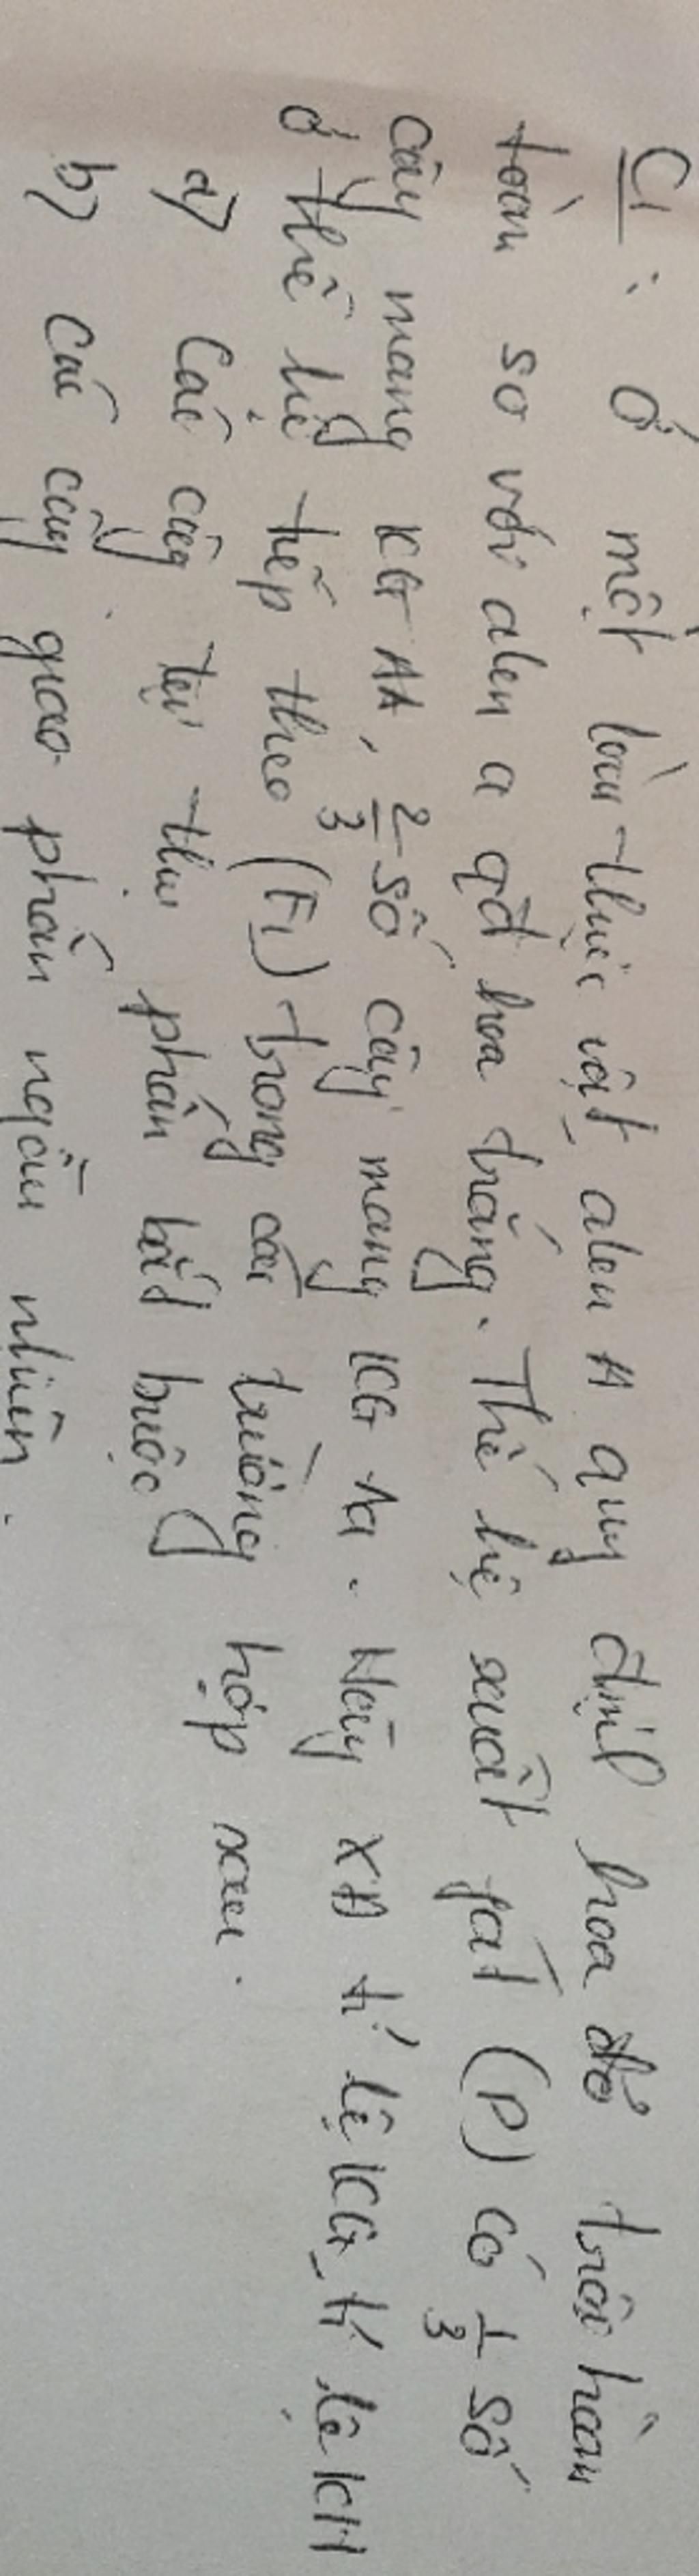 C1: Ở một loài thực vật, alen A quy định hoa đỏ trội hoàn
toàn so với alen a qđ hoa trắng. Thế hệ xuất phát (P) có 1/3 số
cây mang KG AA, 2/3 số cây mang KG Aa. Hãy XĐ tỉ lệ KG, tỉ lệ KH
ở thế hệ tiếp theo (F1) trong các trường hợp sau.
a) Các cây tự thụ phấn bắt buộc
b) Các cây giao phấn ngẫu nhiên.